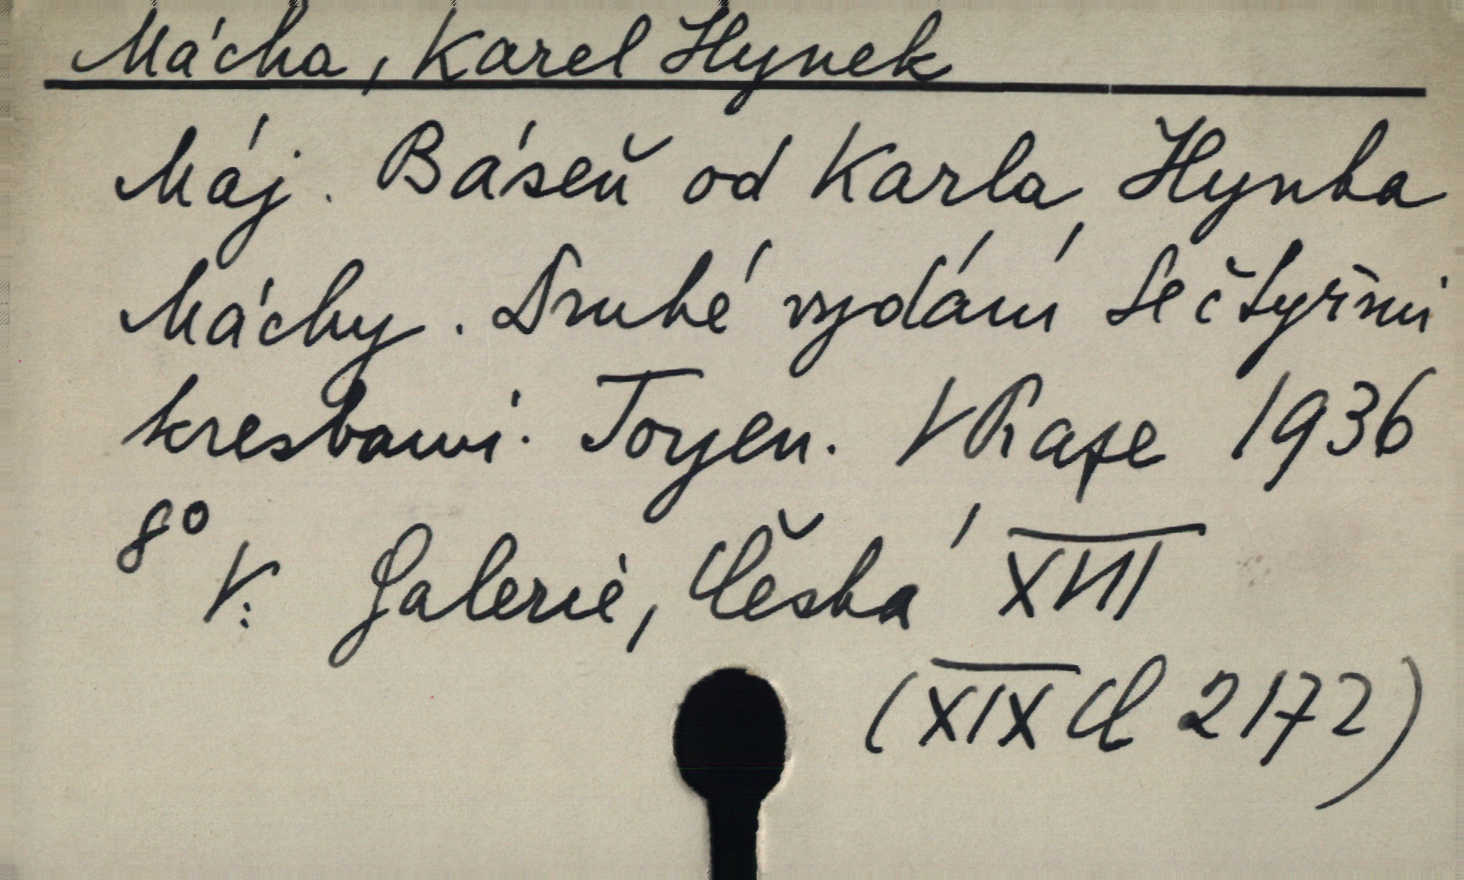 Mácha, Karel Hynek
Máj. Báseň od Karla Hynka
Máchy. Druhé vydání se čtyřmi
kresbami Toyen. V Praze 1936
8°
V: Galerie, Česká XVII
(XIX Cl 2172)